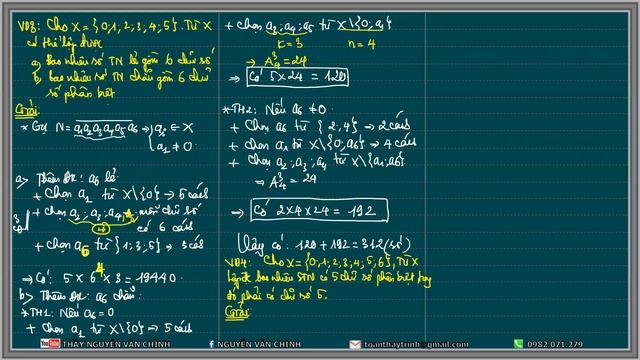 VD3: Cho X = {0; 1; 2; 3; 4; 5}. Từ X
có thể lập được
a) Bao nhiêu số TN lẻ gồm 6 chữ số
b) Bao nhiêu số TN chẵn gồm 6 chữ
số phân biệt
Giải:
* Gọi N = a₁a₂a₃a₄a₅a₆ → aᵢ ∈ X
a₁ ≠ 0
a) Thêm ĐK: a₆ lẻ
+ Chọn a₁ từ X\{0} → 5 cách
+ Chọn a₂; a₃; a₄; a₅ mỗi chữ số
có 6 cách
+ Chọn a₆ từ {1; 3; 5} → 3 cách
→ Có: 5 × 6⁴ × 3 = 19440.
b) Thêm ĐK: a₆ chẵn
* TH1: Nếu a₆ = 0
+ Chọn a₁ từ X\{0} → 5 cách
+ Chọn a₂; a₄; a₅ từ X\{0; a₁}
k = 3 n = 4
→ A³₄ = 24
→ Có 5 × 24 = 120
* TH2: Nếu a₆ ≠ 0
+ Chọn a₆ từ {2; 4} → 2 cách
+ Chọn a₁ từ X\{0; a₆} → 4 cách
+ Chọn a₂; a₃; a₄ từ X\{a₁; a₆}
→ A³₄ = 24
→ Có 2×4×24 = 192
Vậy có: 120 + 192 = 312 (số)
VD4: Cho X = {0; 1; 2; 3; 4; 5; 6}, Từ X
bao nhiêu STN có 5 chữ số phân biệt
đó phải có chữ số 5.
Giải:
YouTube THẦY NGUYỄN VĂN CHINH NGUYỄN VĂN CHINH toanthaytrinh@gmail.com 0982.071.279